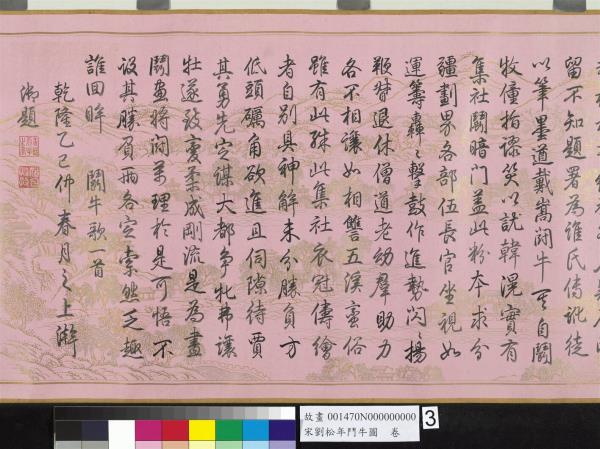 留不知題署為誰氏傳訛徒
以筆墨道戴嵩鬪牛自鬪
牧僮指謬笑以訛韓滉實有
集社鬪暗門蓋此粉本求分
疆劃界各部伍長官坐視如
運籌轟〻擊鼓作進勢閃〻揚
鞭退休僧道老幼羣助力
各不相讓如相讐五溪蠻俗
雖有此殊此集社衣冠傳繪
者自別具神解未分勝負方
低頭礪角欲進且伺隙待賈
其勇先定謀大都爭牝弗讓
牡遂致變柔成剛流是為畫
鬪畫將理於是可悟不
設其勝負兩各定索然乏趣
誰回眸 鬪牛歌一首
乾隆乙巳仲春月之上澣
御題
故畫 001470N000000000
宋劉松年鬥牛圖 卷
3